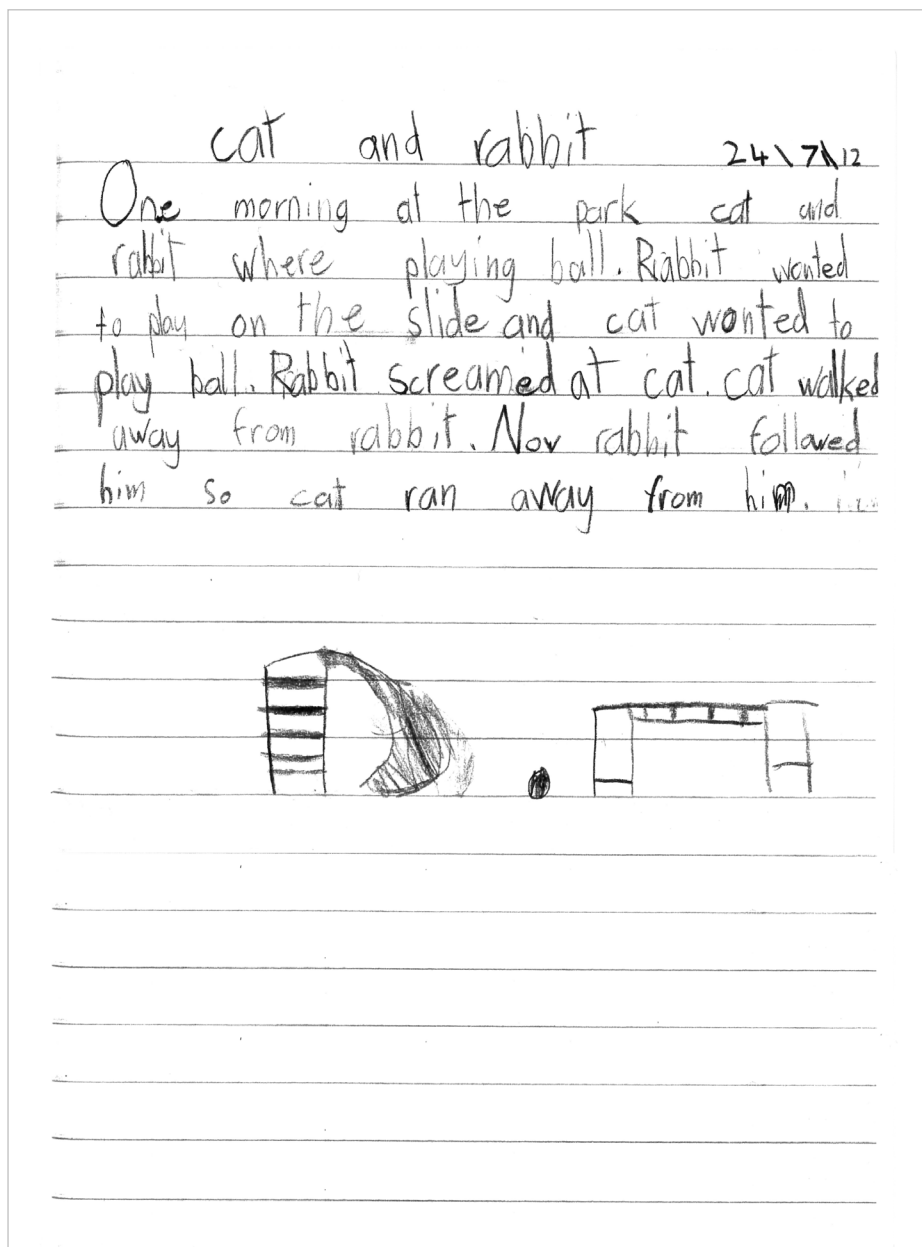 cat and rabbit 24\7\12
One morning at the park cat and
rabbit where playing ball. Rabbit wonted
to play on the slide and cat wonted to
play ball. Rabbit screamed at cat. cat walked
away from rabbit. Now rabbit followed
him so cat ran away from him.